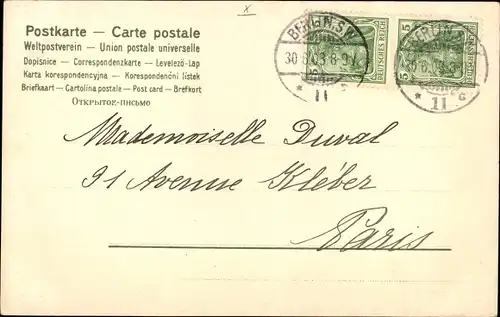 x
Postkarte — Carte postale
Weltpostverein — Union postale universelle
Dopisnice — Correspondenzkarte — Levelező-Lap
Karta korespondencyjna — Korespondenční lístek
Briefkaart — Cartolina postale — Post card — Brefkort
Открытое-письмо
BERLIN S.W.
30 6 03 8-9V
* 11 c
DEUTSCHES REICH
5
DEUTSCHES REICH
BERLIN
* 11 c
Mademoiselle Duval
91 Avenue Kléber
Paris